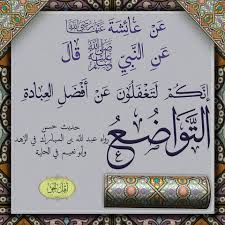 عَنْ عَائِشَةَ رضي الله عنها
عَنِ النَّبِيِّ ﷺ قَالَ
إِنَّكُمْ لَتَغْفُلُونَ عَنْ أَفْضَلِ العِبَادَةِ
التَّوَاضُعُ
حديث حسن
رواه عبد الله بن المبارك في الزهد
وأبو نعيم في الحلية